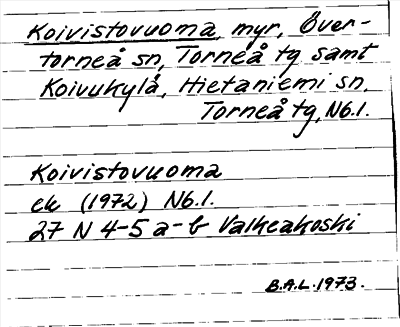 Koivistovuoma, myr, Över-
torneå sn, Torneå tg samt
Koivukylä, Hietaniemi sn,
Torneå tg, Nb.l.
Koivistovuoma
ek (1972) Nb.l.
27 N 4-5 a-b Valkeakoski
B.A.L. 1973.